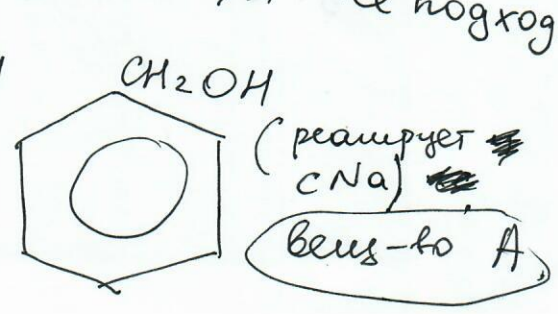 подход
CH2OH
(реагирует
с Na)
вещ-во А